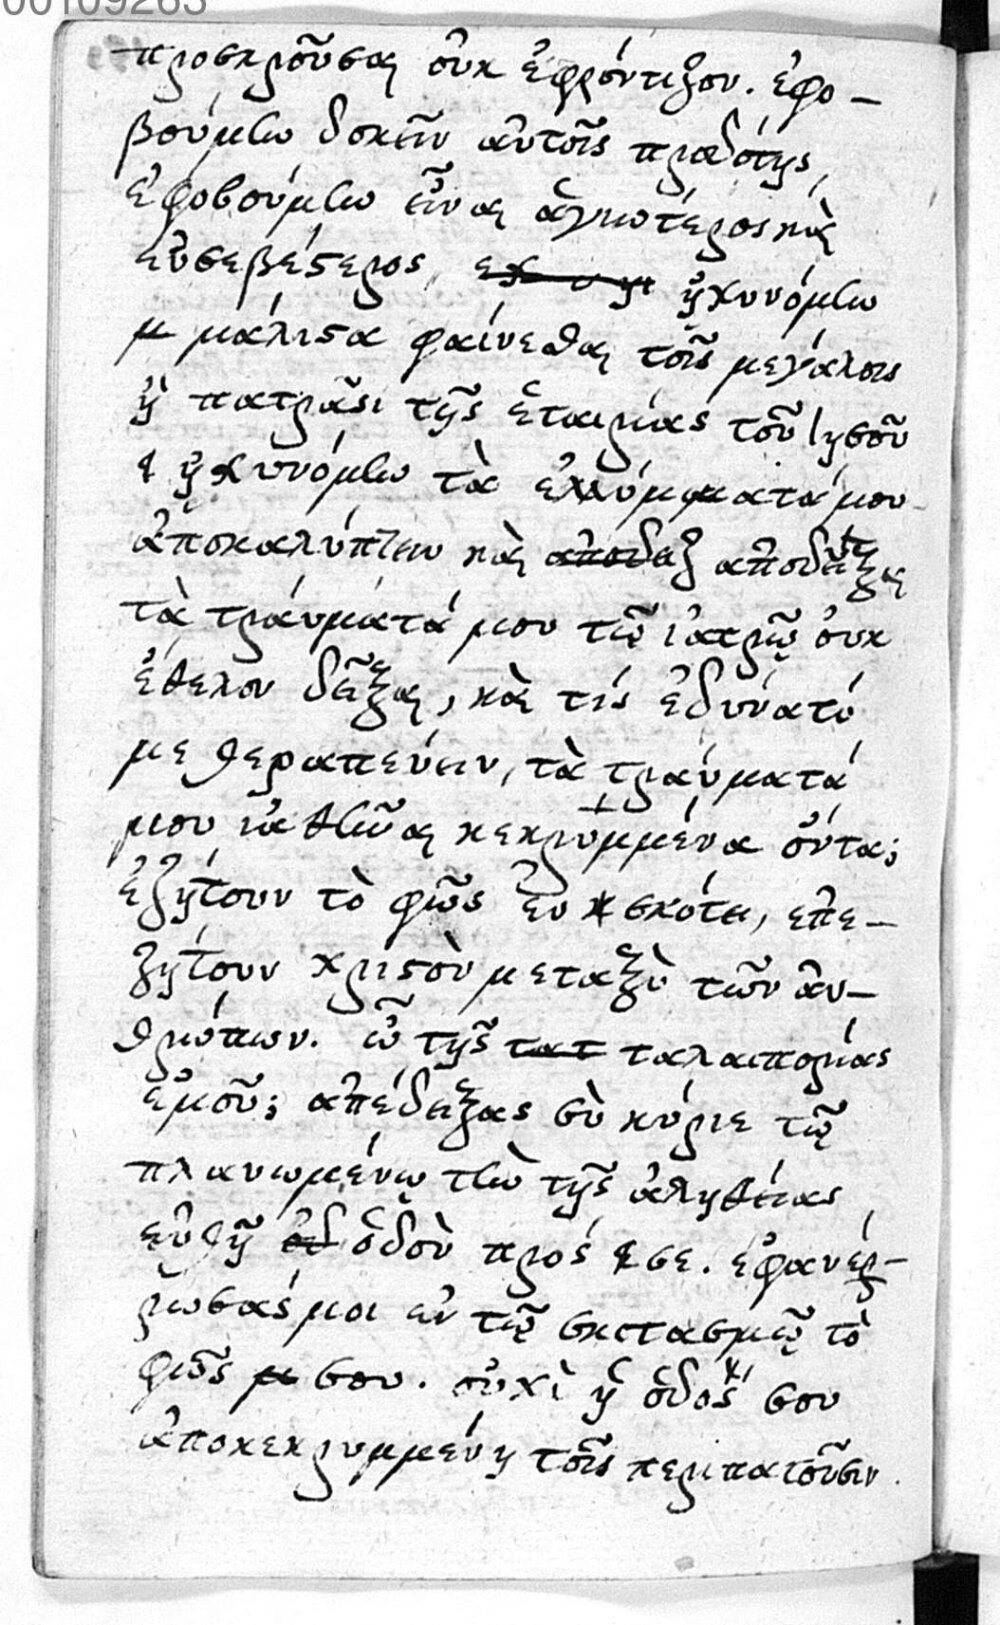 00109263
προσκρούσαι οὐκ ἐφρόντιζον. ἐφο-
βούμην δοκεῖν αὐτοῖς προδότης,
ἐφοβούμην εἶναι ἁγιωτέρος καὶ
εὐσεβέστερος, ᾐχυνόμην
μάλιστα φαίνεσθαι τοῖς μεγάλοις
πατρᾶσι τῆς ἑταιρίας τοῦ Ἰησοῦ
ᾐχυνόμην τὰ ἐλλύμματά μου
ἀποκαλύπτειν καὶ ἀποδεῖξαι
τὰ τράυματά μου τῷ ἰατρῷ οὐκ
ἔθελον δεῖξαι, καὶ τίς ἐδυνάτό
με θεραπεύειν, τὰ τράυματά
μου ἰαθῆναι κεκρυμμένα ὄντα;
ἐζήτουν τὸ φῶς ἐν σκότει, ἐπε-
ζήτουν χριστὸν μεταξὺ τῶν ἀν-
θρώπων. ὦ τῆς ταλαιπορίας
ἐμοῦ; ἀπέδειξας σὺ κύριε τῷ
πλανωμένῳ τὴν τῆς ἀληθείας
εὐθῆ ὁδὸν πρός σε. ἐφανέρ-
ρωσάς μοι ἐν τῷ σκοτασμῷ τὸ
φῶς σου. οὐχὶ ἡ ὁδός σου
ἀποκεκρυμμένη τοῖς περιπατοῦσιν